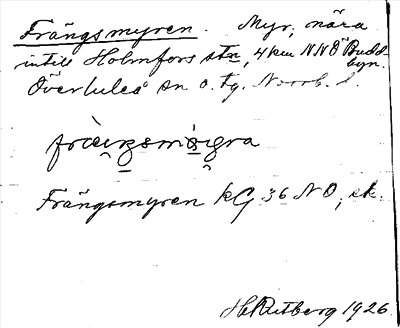 Frängsmyren. Myr, nära
intill Holmfors stn, 4 km NNÖ Budd-
byn.
Överluleå sn o. tg. Norrb. l.
Frängsmyren kG 36 NO, ek.
H. Rutberg 1926.